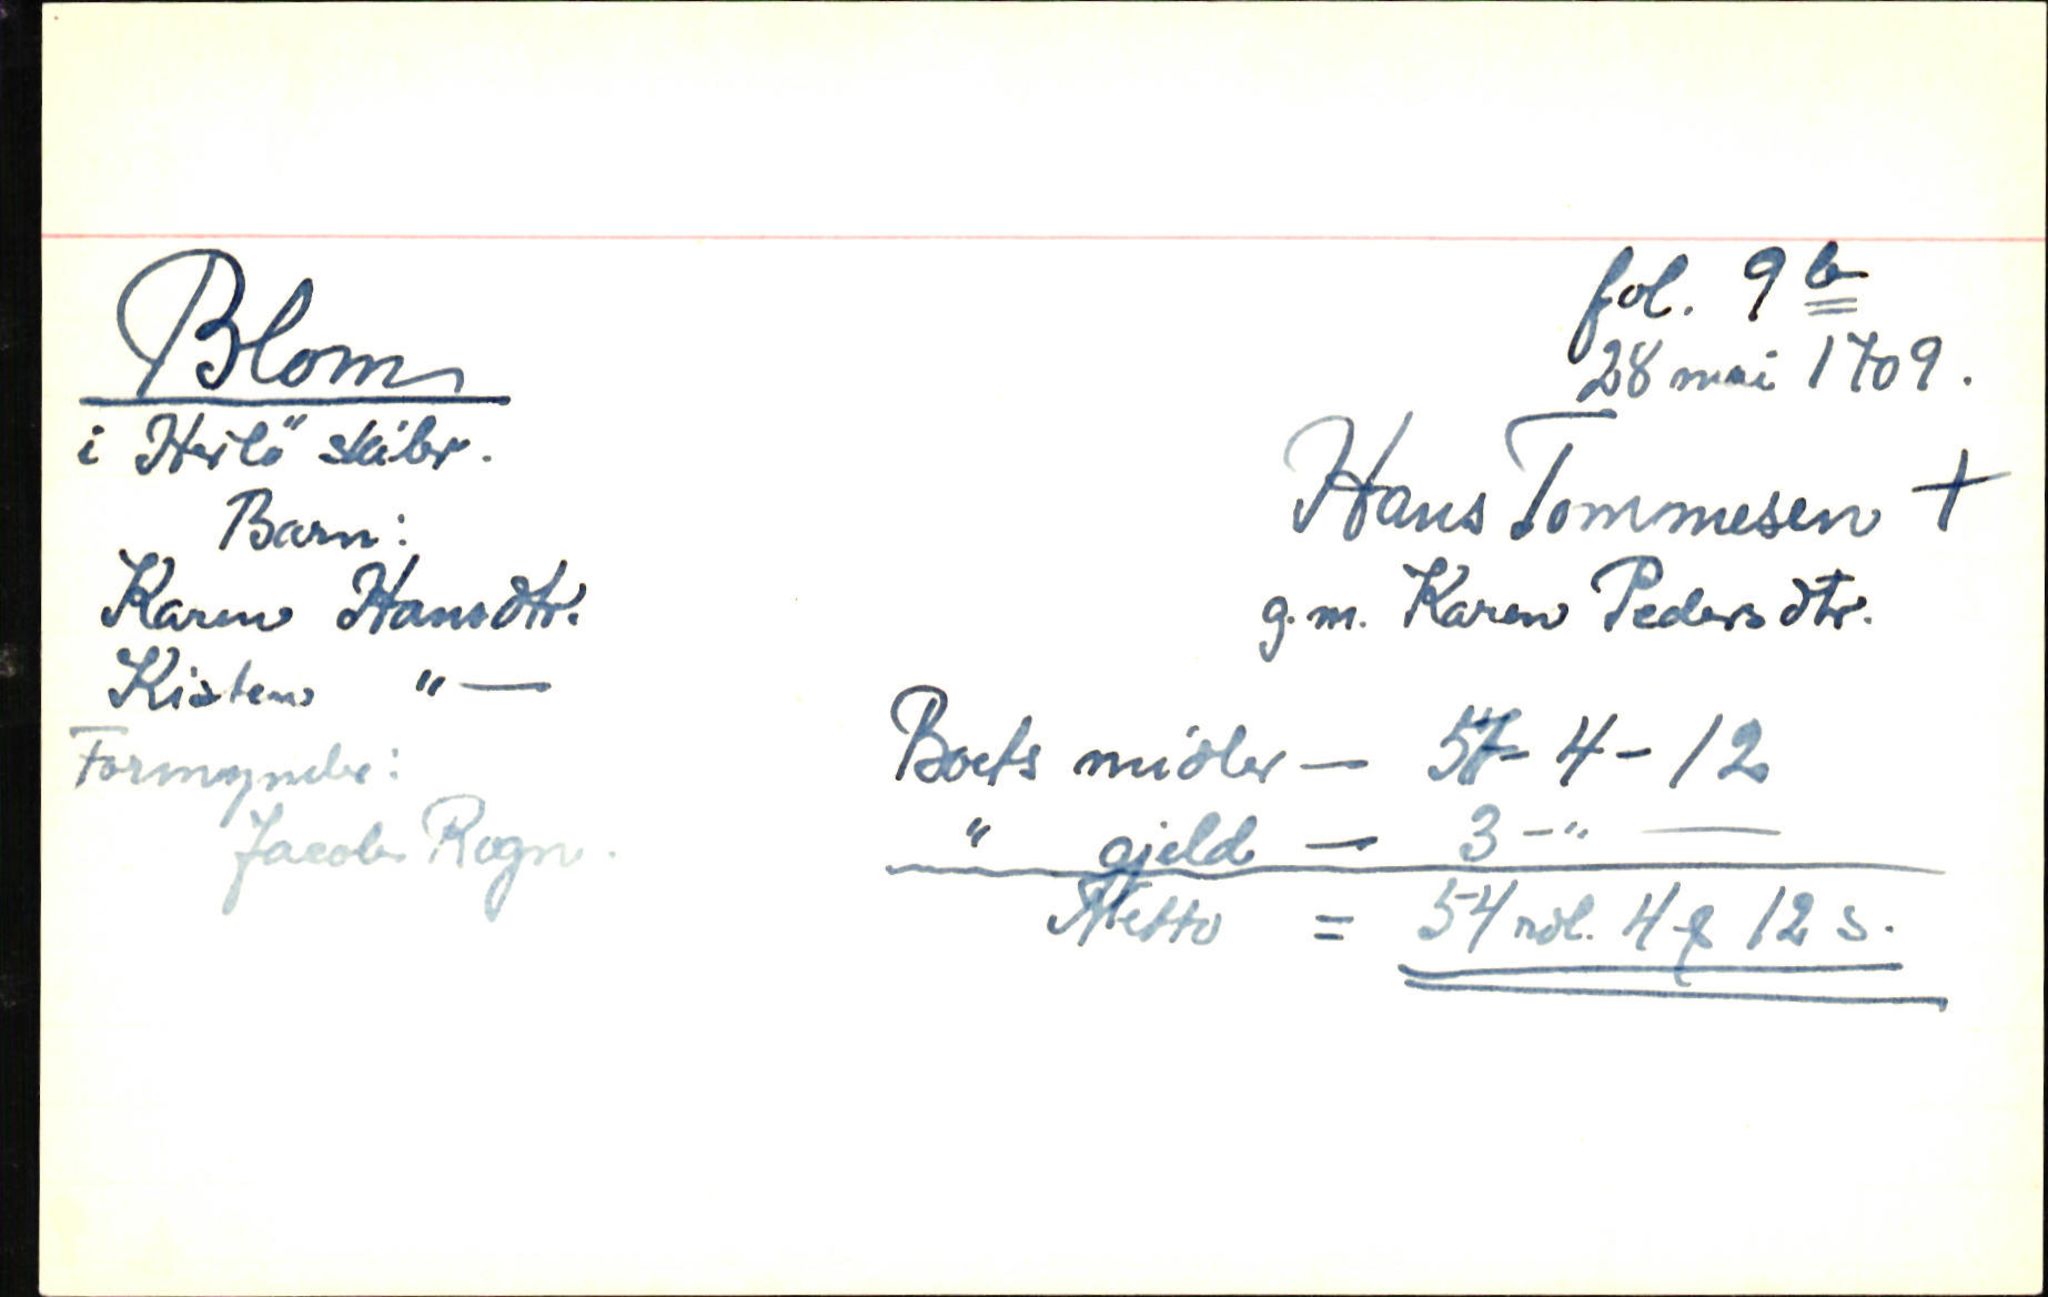 Blom
i Herlö skibr.
Barn:
Karen Hansdtr.
Kisten "—
Formynder:
Jacob Rogn.
fol. 9 b
28 mai 1709.
Hans Tommesen +
g.m. Karen Pedersdtr.
Boets midler — 57 - 4 - 12
" gjeld — 3 - " —
Netto = 54 rdl. 4 ₰ 12 s.